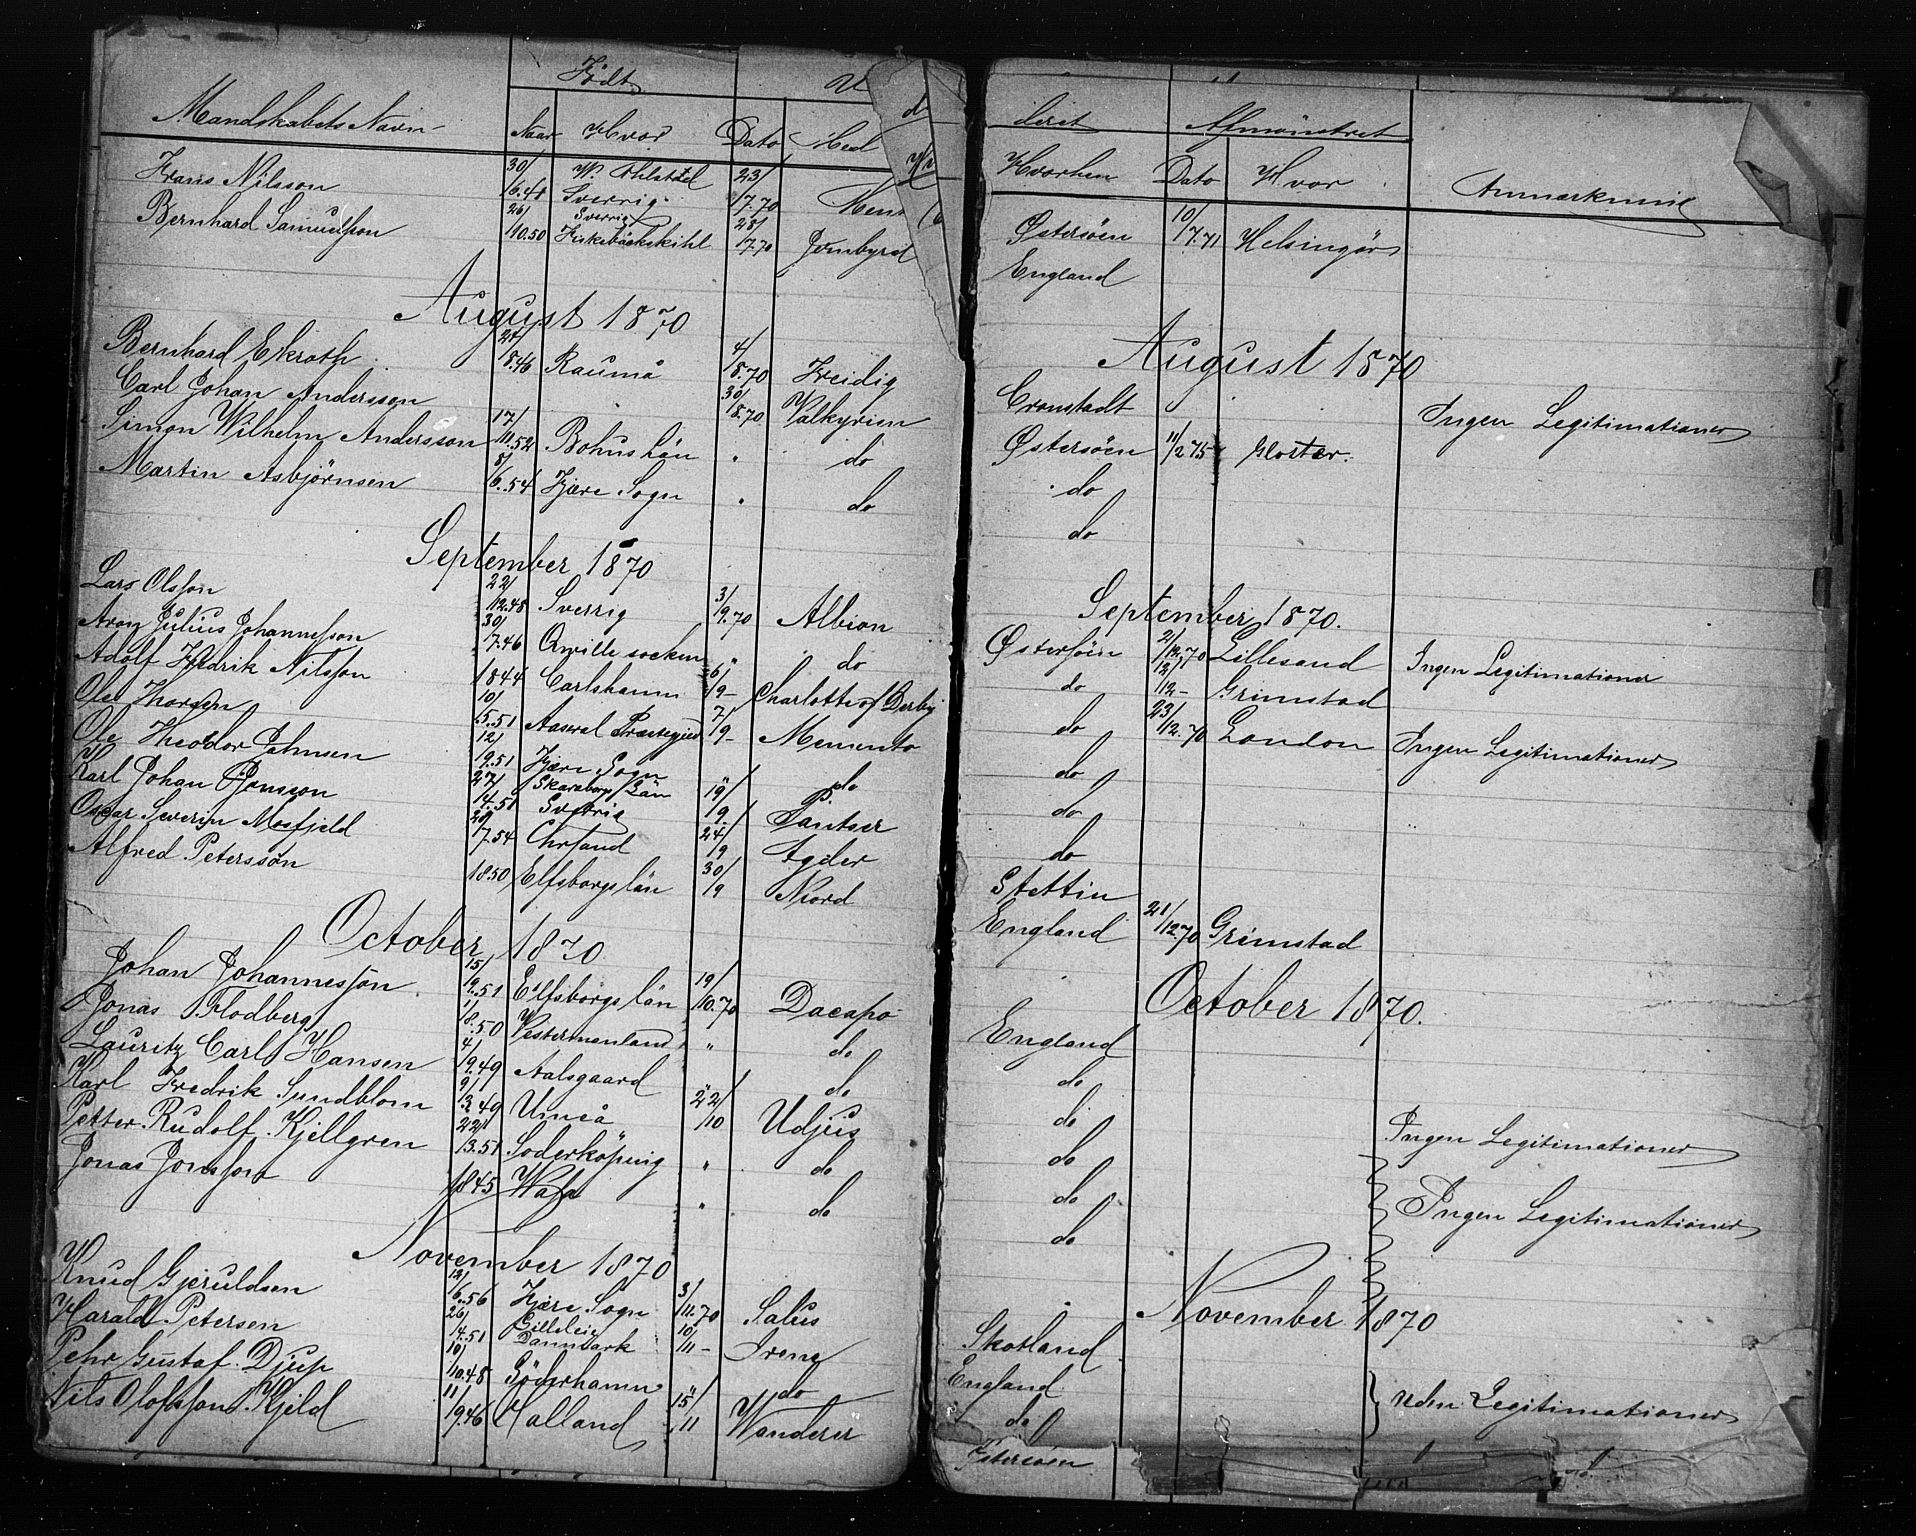 Mandskabets Navn Født
Aar Hvor Dato Med
Frans Nilsson 30/6.48 Sverrig 23/7.70
Bernhard Samuelsson 26/10.50 Sverrig Fiskebäckskihl 28/7.70 Jernbyrd
August 1870
Bernhard Ekroth 8.46 Raumå 4/8.70 Freidig
Carl Johan Andersson 30/8.70 Valkyrien
Simon Wilhelm Andersson 17/11.52 Bohuslän " do
Martin Asbjørnsen 8/6.54 Fjære Sogn " do
September 1870
Lars Olsson 22/12.48 Sverrig 3/9.70 Albion
Aron Julius Johannesson 30/7.46 socken " do
Adolf Fredrik Nilsson 1844 Carlshamn 6/9– Charlotte of Derby
Ole Thorsen 10/5.51 Aaseral Præstegjeld 7/9– Memento
Ole Theodor Jahnsen 12/9.51 Fjære Sogn " do
Karl Johan Jonsson 27/4.51 Skaraborgs Län Sverrig 19/9. Pantser
Oscar Severin Mosfjeld 7.54 Chrsand 24/9 Agder
Alfred Petersson 1850 Elfsborgs län 30/9 Niord
October 1870
Johan Johannesson 15/9.51 Elfsborgs län 19/10.70 Dacapo
Jonas Flodberg 1/8.50 Vestermanland " do
Lauritz Carl Hansen 4/9.49 Aalsgaard " do
Karl Fredrik Sundblom 9/3.49 Umeå 22/10 Udjus
Petter Rudolf Kjellgren 22/3.51 Söderköping " do
Jonas Jonsson 1845 " do
November 1870
Knud Gjeruldsen 12/6.56 Fjære Sogn 3/11.70 Salus
Harald Petersen 26/4.51 Gilleleie Danmark 10/11– Irene
Pehr Gustaf Djup 10/10.48 Söderhamn " do
Nils Olofsson Kjeld 11/9.46 Halland 15/11 Wanderer
deret Afmønstret
Hvorhen Dato Hvor Anmærkning
Østersøen 10/7.71 Helsingør
England
August 1870
Cronstadt Ingen Legitimationer
Østersøen 11/2 75 Gloster.
do
do
September 1870.
Østersøen 2/12.70 Lillesand Ingen Legitimationer
do 12/12– Grimstad
do 23/12.70 London Ingen Legitimationer
do
do
do
Stettin
England 21/12.70 Grimstad
October 1870.
England
do
do Ingen Legitimationer
do
do Ingen Legitimationer
do
November 1870
Skotland
England
do Uden Legitimationer
Østersøen